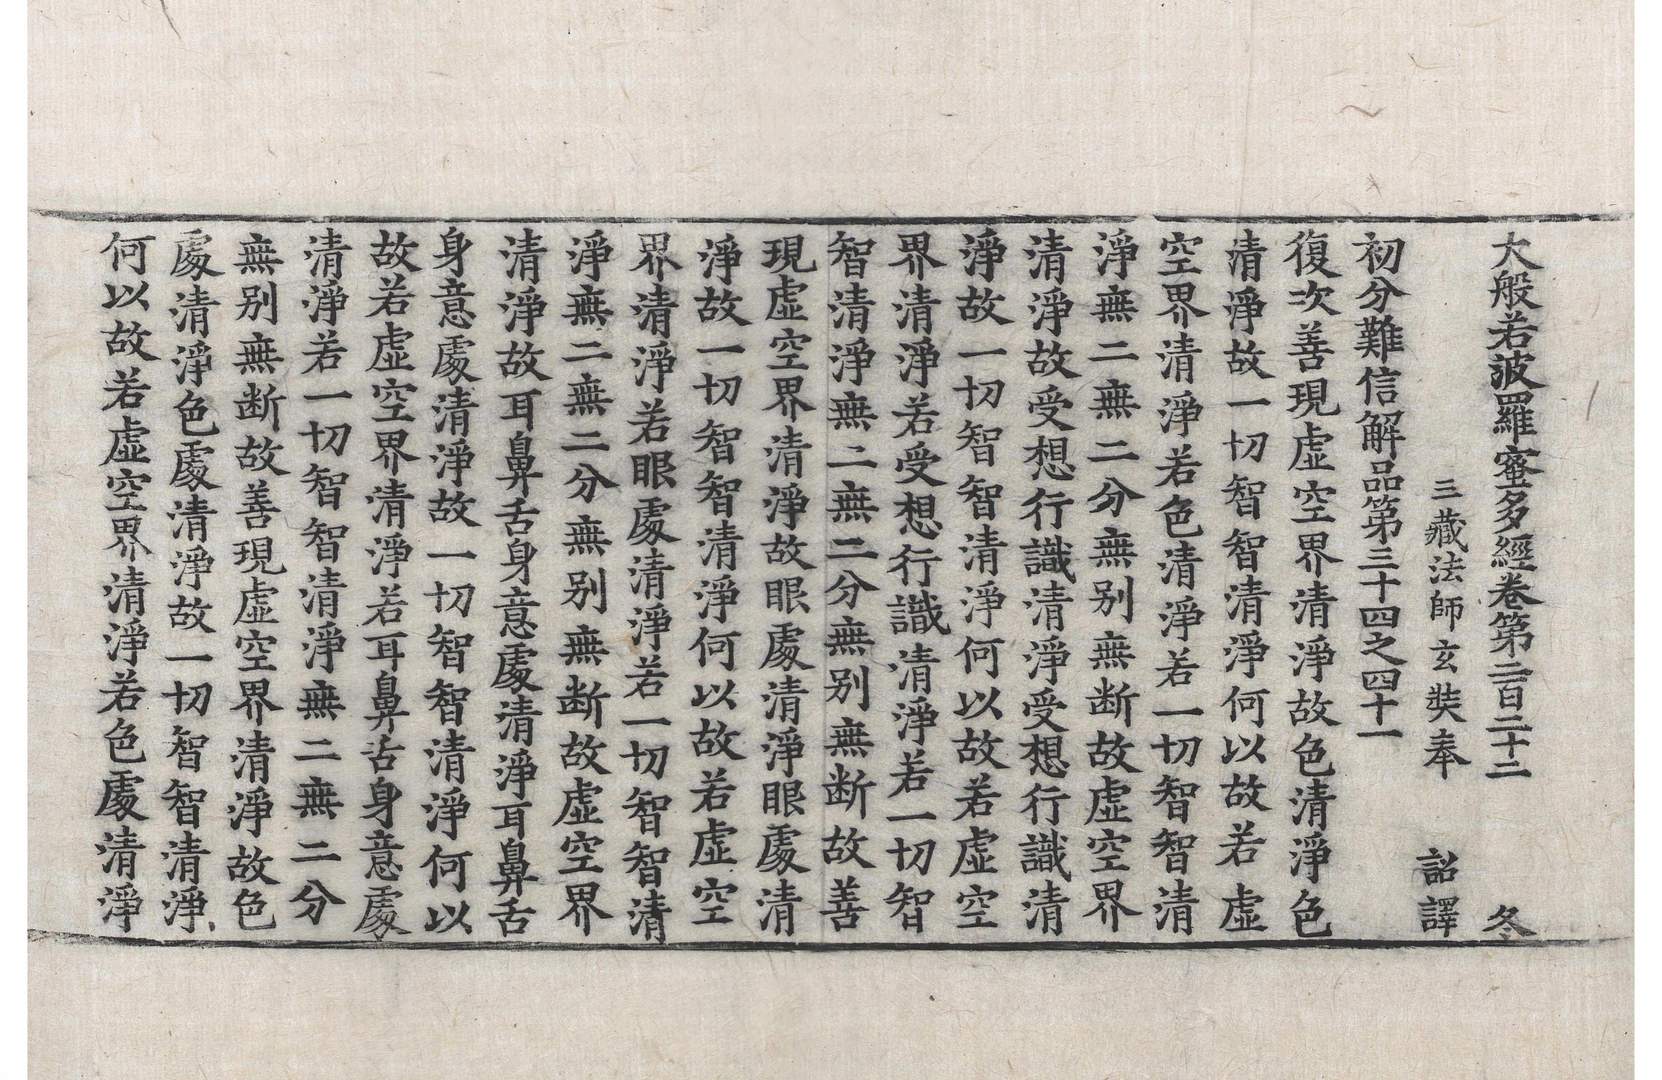 大般若波羅蜜多經卷第二百二十二　冬
三藏法師玄奘奉　詔譯
初分難信解品第三十四之四十一
復次善現虛空界清淨故色清淨色
清淨故一切智智清淨何以故若虛
空界清淨若色清淨若一切智智清
淨無二無二分無別無斷故虛空界
清淨故受想行識清淨受想行識清
淨故一切智智清淨何以故若虛空
界清淨若受想行識清淨若一切智
智清淨無二無二分無別無斷故善
現虛空界清淨故眼處清淨眼處清
淨故一切智智清淨何以故若虛空
界清淨若眼處清淨若一切智智清
淨無二無二分無別無斷故虛空界
清淨故耳鼻舌身意處清淨耳鼻舌
身意處清淨故一切智智清淨何以
故若虛空界清淨若耳鼻舌身意處
清淨若一切智智清淨無二無二分
無別無斷故善現虛空界清淨故色
處清淨色處清淨故一切智智清淨
何以故若虛空界清淨若色處清淨